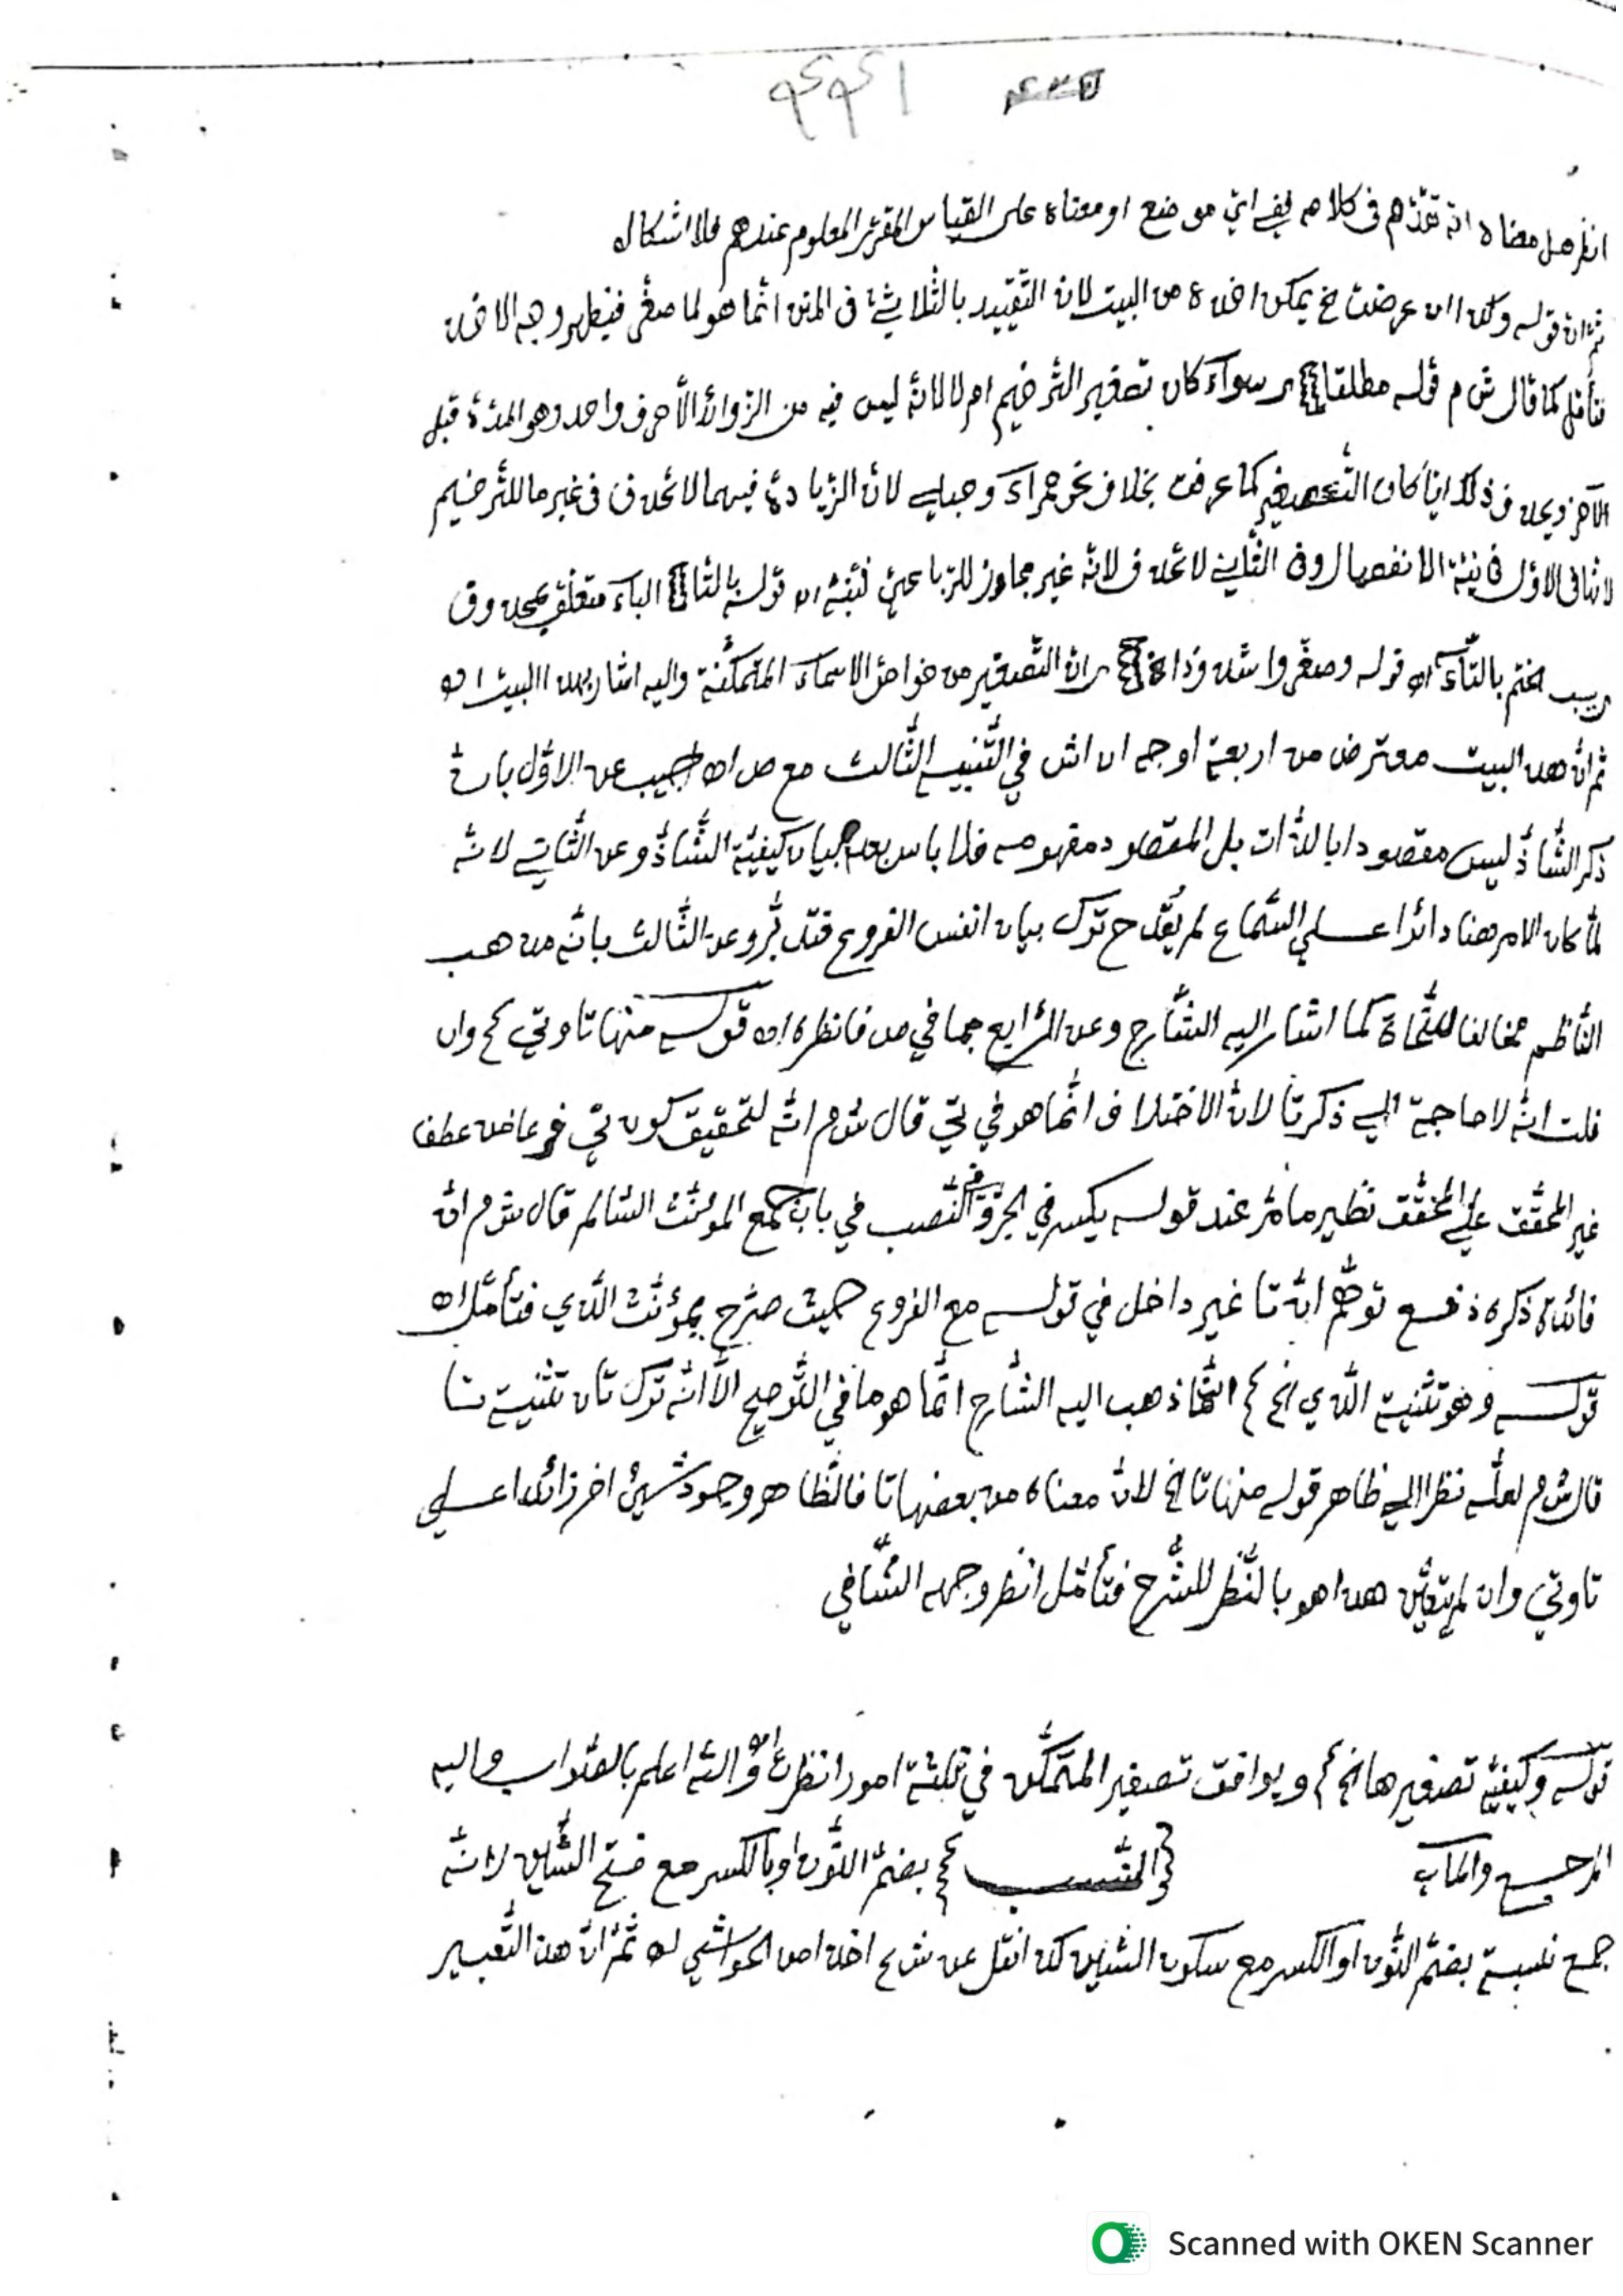 انظر هل معناه انه تقدم في كلامه في اي موضع او معناه على القياس المقرر المعلوم عندهم فلا اشكال
ثم ان قوله وكذا ان عرضت خ يمكن اخذه من البيت لان التقييد بالثلاثي في المتن انما هو لما صغر فيظهر وجه الاخذ
فتأمل كما قال ش م قوله مطلقا سواء كان تصغير الترخيم ام لا لانه ليس فيه من الزوائد الا حرف واحد وهو المدة قبل
الآخر ويحذف ذلك ايا كان التصغير كما عرفت بخلاف نحو حمراء وحبلى لان الزيادة فيهما لا تحذف في غير ما للترخيم
لانها في الاول في نية الانفصال وفي الثاني لا تحذف لانه غير مجاوز للرباعي اه قوله بالتا الباء متعلق بمحذوف
يختم بالتاء اه قوله وصغروا شذوذا الخ ان التصغير من خواص الاسماء المتمكنة واليه اشار بهذا البيت اه
ثم ان هذا البيت معترض من اربعة اوجه ان اش في التنبيه الثالث مع ص اه اجيب عن الاول بان
ذكر الشاذ ليس مقصودا بالذات بل المقصود مفهومه فلا باس بعد ببيان كيفية الشاذ وعن الثاني لانه
لما كان الامر هنا دائرا على السماع لم يقدح ترك بيان انفس الفروع فتدبر وعن الثالث بانه مذهب
الناظم مخالفا للنحاة كما اشار اليه الشارح وعن الرابع بما في ص فانظره اه قوله منها تا وتي كم وان
قلت انه لا حاجة الى ذكر تا لان الاختلاف انما هو في تي قال ش م انه لتحقيق كون تي عطف
غير المحقق على المحقق نظير ما مر عند قوله يكسر في الجر وفي النصب في باب جمع المؤنث السالم قال ش م ان
فائدة ذكره دفع توهم انه تا غير داخل في قوله مع الفروع حيث صرح بمؤنث الذي فتأمل اه
قوله وهو تثنية الذي الخ كم ذهب اليه الشارح انما هو ما في التوضيح الا انه ترك تان تثنية تا
قال ش م لعله نظرا الى ظاهر قوله منها تا الخ لان معناه من بعضها تا فالظاهر وجود شيئ اخر زائدا على
تا وتي وان لم يتعين هذا هو بالنظر للشرح فتأمل انظر وجهه الشافي
قوله وكيفية تصغيرها الخ كم ويوافق تصغير المتمكن في ثلثة امور انظر والله اعلم بالصواب واليه
المرجع والمآب النسب كم بضم النون او بالكسر مع فتح السين لانه
جمع نسبة بضم النون او الكسر مع سكون السين كذا نقل عن ش ع اخذا من الحواشي له ثم ان هذا التعبير
Scanned with OKEN Scanner